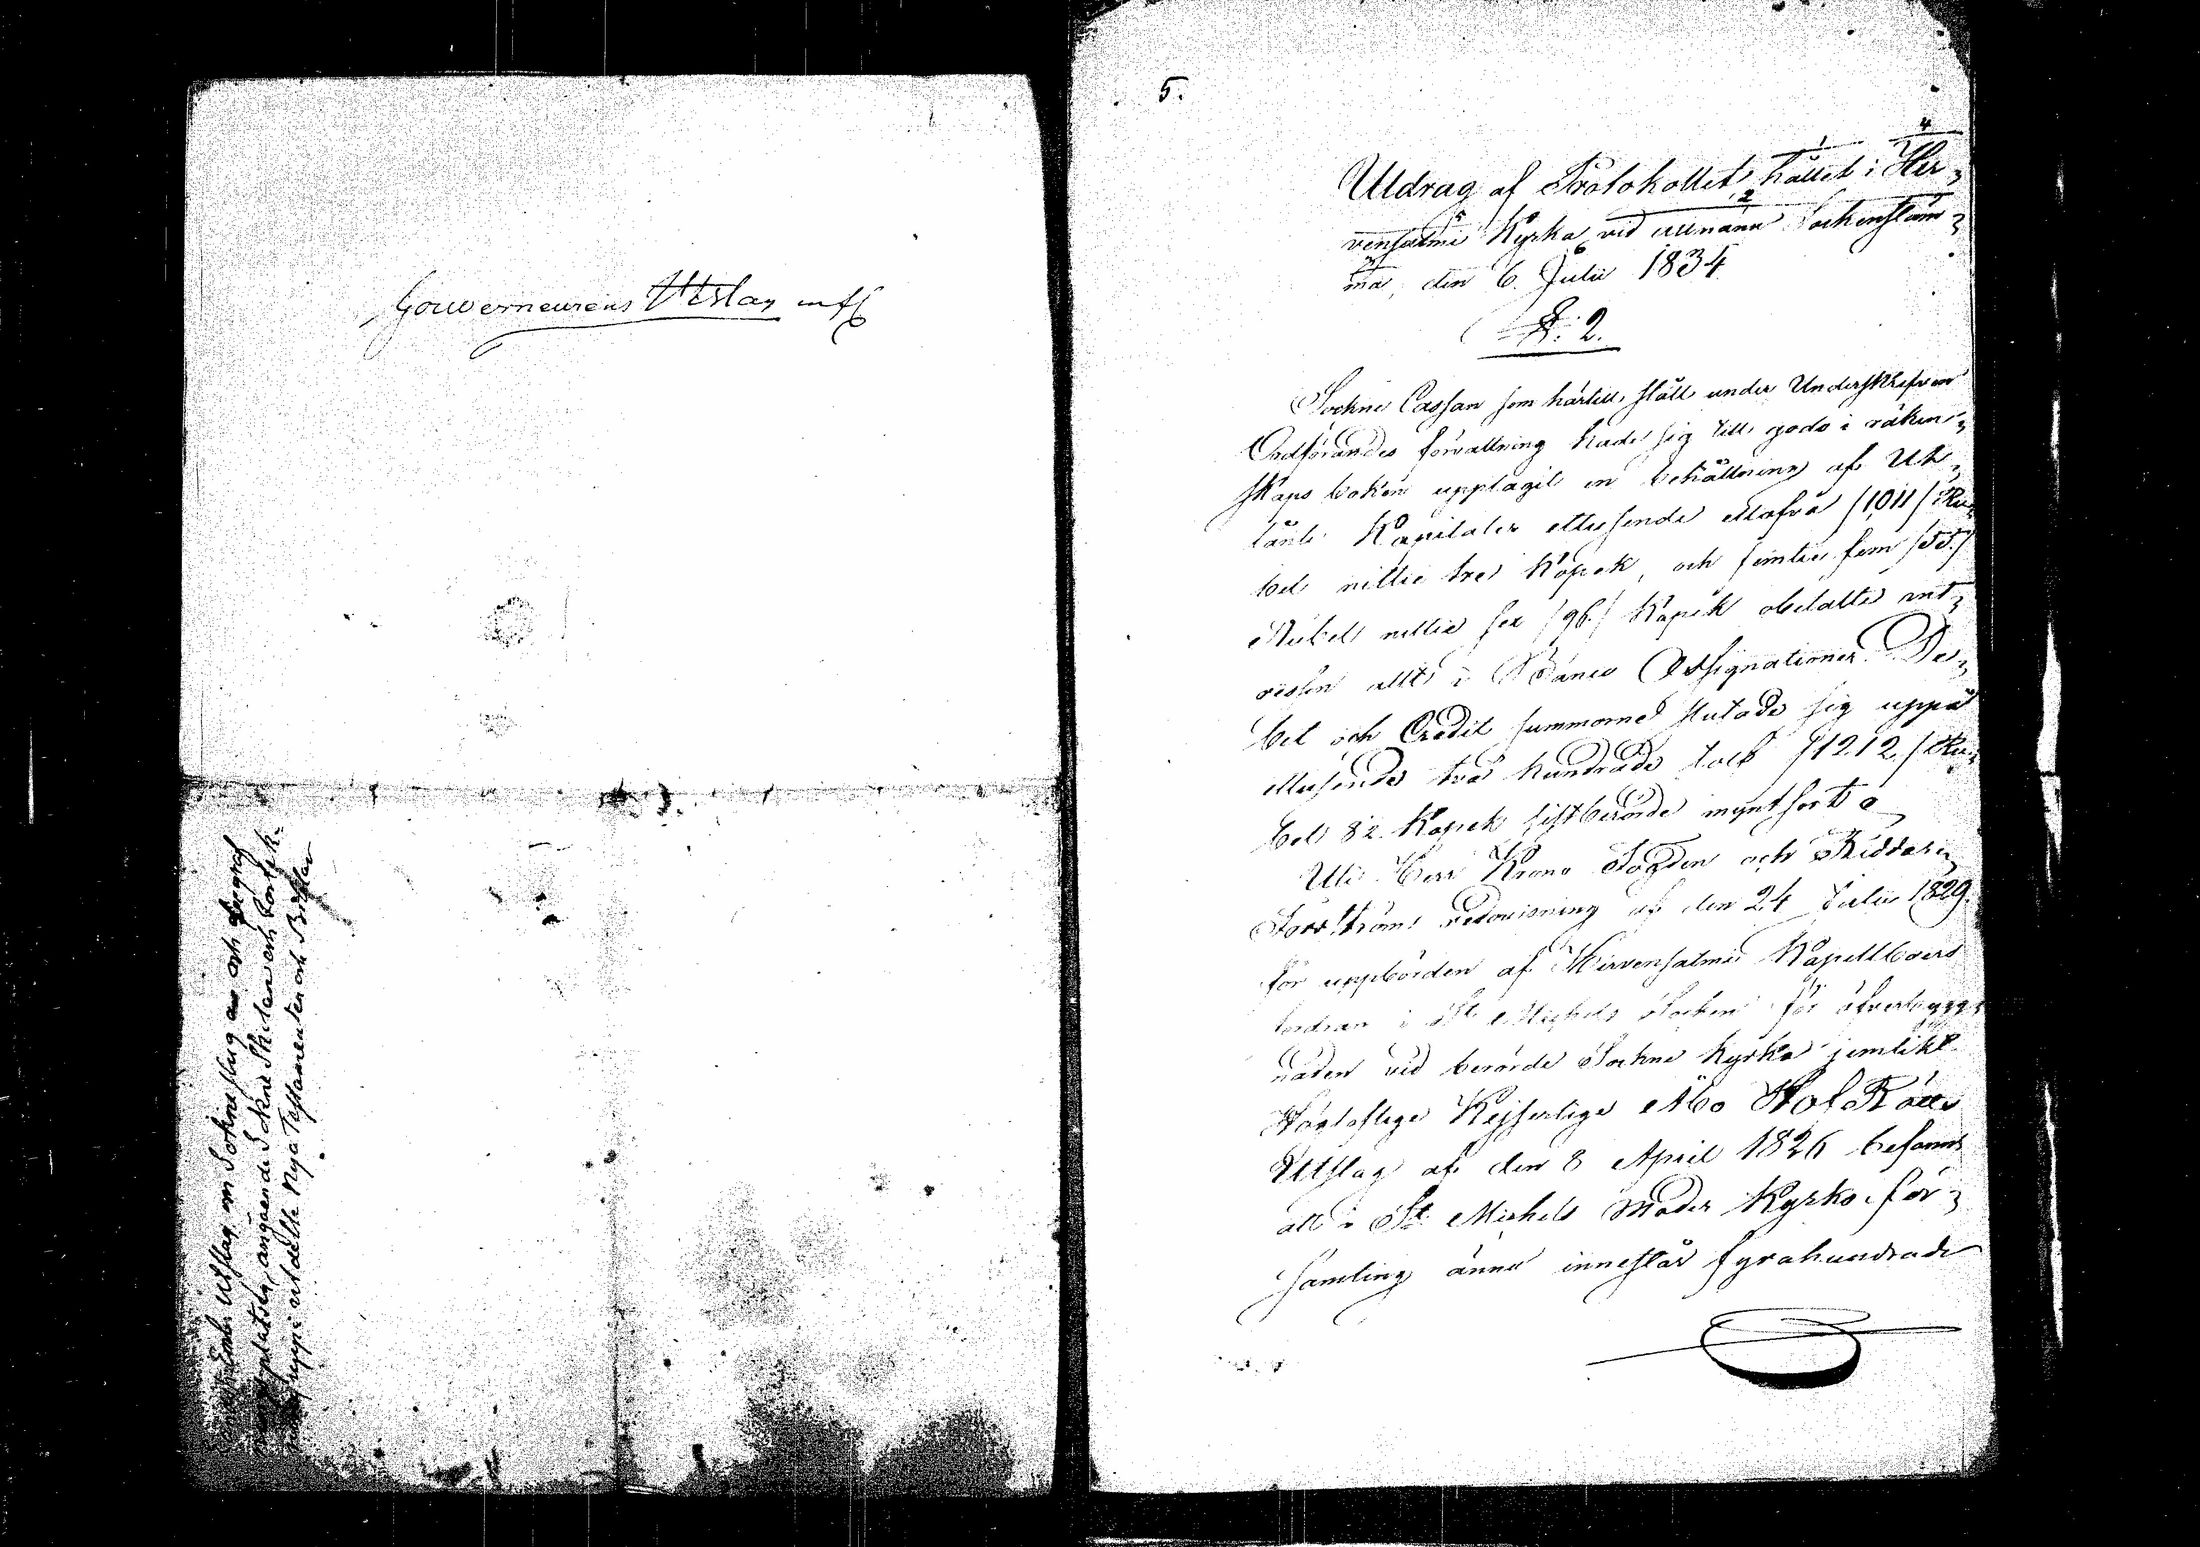 Gouverneurens Utslag
Utslag om Sokne
angående Sokne
upp: utdelte Nya Testamenter och Biblar
5.
Utdrag af Protokollet, hållet i Hir,
vensalmi Kyrka vid allmänn Sockenstäm,
ma, den 6. Julii 1834
§. 2.
Sockne Cassan som härtill stått under Underskrefven
Ordförandes förvaltning hade sig till godo i räken,
skaps boken upptagit en behållning af Ut,
lånte Kapitaler ettusende elfva /1011/ Ru,
bel nittie tre Kopek, och femtie fem /55./
Rubel nittie sex /96./ Kopek obetalte int,
ressen allt i Banco Assignationer. De,
bet och Credit summorne slutade sig uppå
ettusende två hundrade tolf /1212/ Ru,
bel 82 Kopek sistberörde myntsort.
Uti Herr Krono Fogden och Riddaren
redovisning af den 24 Julii 1829.
för uppbörden af Hirvensalmi Kapellboers
fordran i St Michels Socken för öfverbygg,
naden vid berörde Sockne Kyrka jemlikt
Högloflige Kejserliga Åbo Hof Rätts
Utslag af den 8 April 1826 befanns
att i St Michels Moder Kyrko för,
samling ännu innestår fyrahundrade